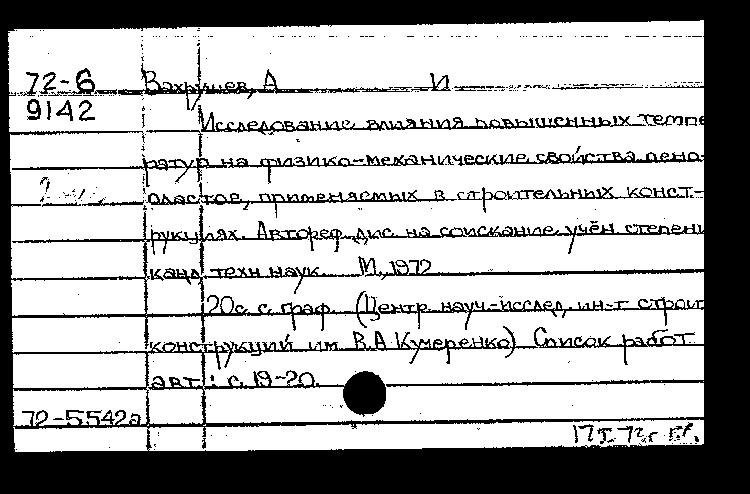 72-6 Вахрушев, А И
9142
Исследование влияния повышенных темпе
ратур на физико-механические свойства пено-
пластов, применяемых в строительных конст-
рукциях. Автореф. дис. на соискание учён степени
канд техн наук. М., 1972
20с. с граф. (Центр науч-исслед. ин-т строит
конструкций им В.А Кучеренко) Список работ
авт.: с. 19-20.
72-5542а
17 I 73г